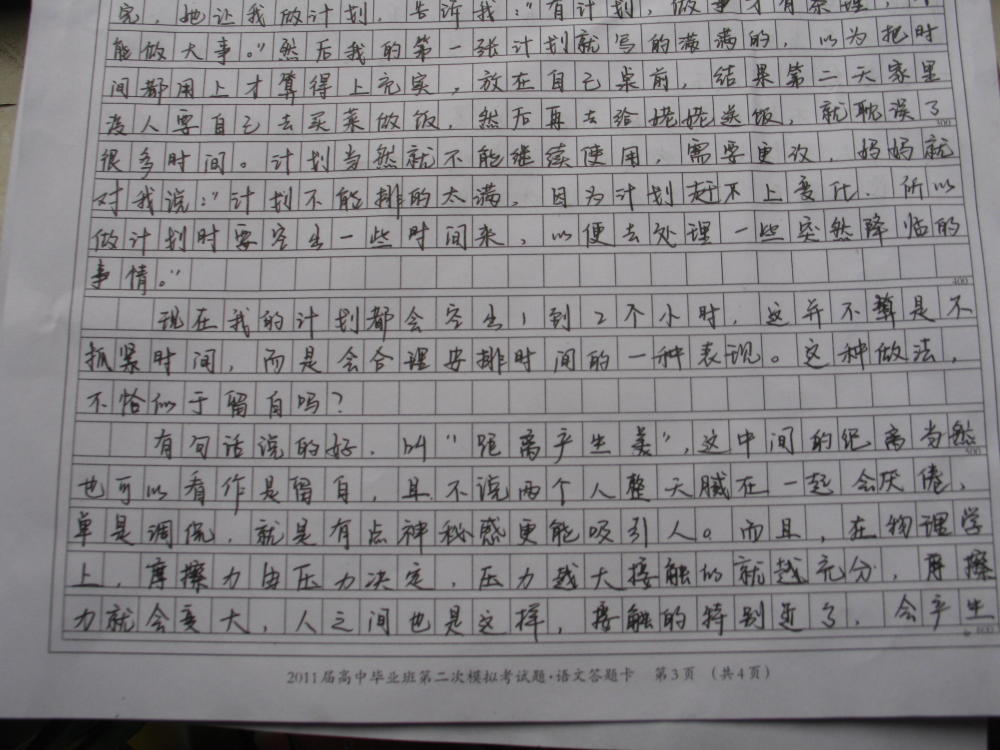 完，她让我做计划，告诉我："有计划，做事才有条理，
能做大事。"然后我的第一张计划就写的满满的，以为把时
间都用上才算得上充实，放在自己桌前，结果第二天家里
没人要自己去买菜做饭，然后再去给姥姥送饭，就耽误了
300
很多时间。计划当然就不能继续使用，需要更改，妈妈就
对我说："计划不能排的太满，因为计划赶不上变化，所以
做计划时要空出一些时间来，以便去处理一些突然降临的
事情。"
400
现在我的计划都会空出1到2个小时，这并不算是不
抓紧时间，而是会合理安排时间的一种表现。这种做法，
不恰似于留白吗？
有句话说的好，叫"距离产生美"，这中间的距离当然
500
也可以看作是留白，且不说两个人整天腻在一起会厌倦，
单是调侃，就是有点神秘感更能吸引人。而且，在物理学
上，摩擦力由压力决定，压力越大接触的就越充分，摩擦
力就会变大，人之间也是这样，接触的特别近了，会产生
600
2011届高中毕业班第二次模拟考试题·语文答题卡 第3页 （共4页）